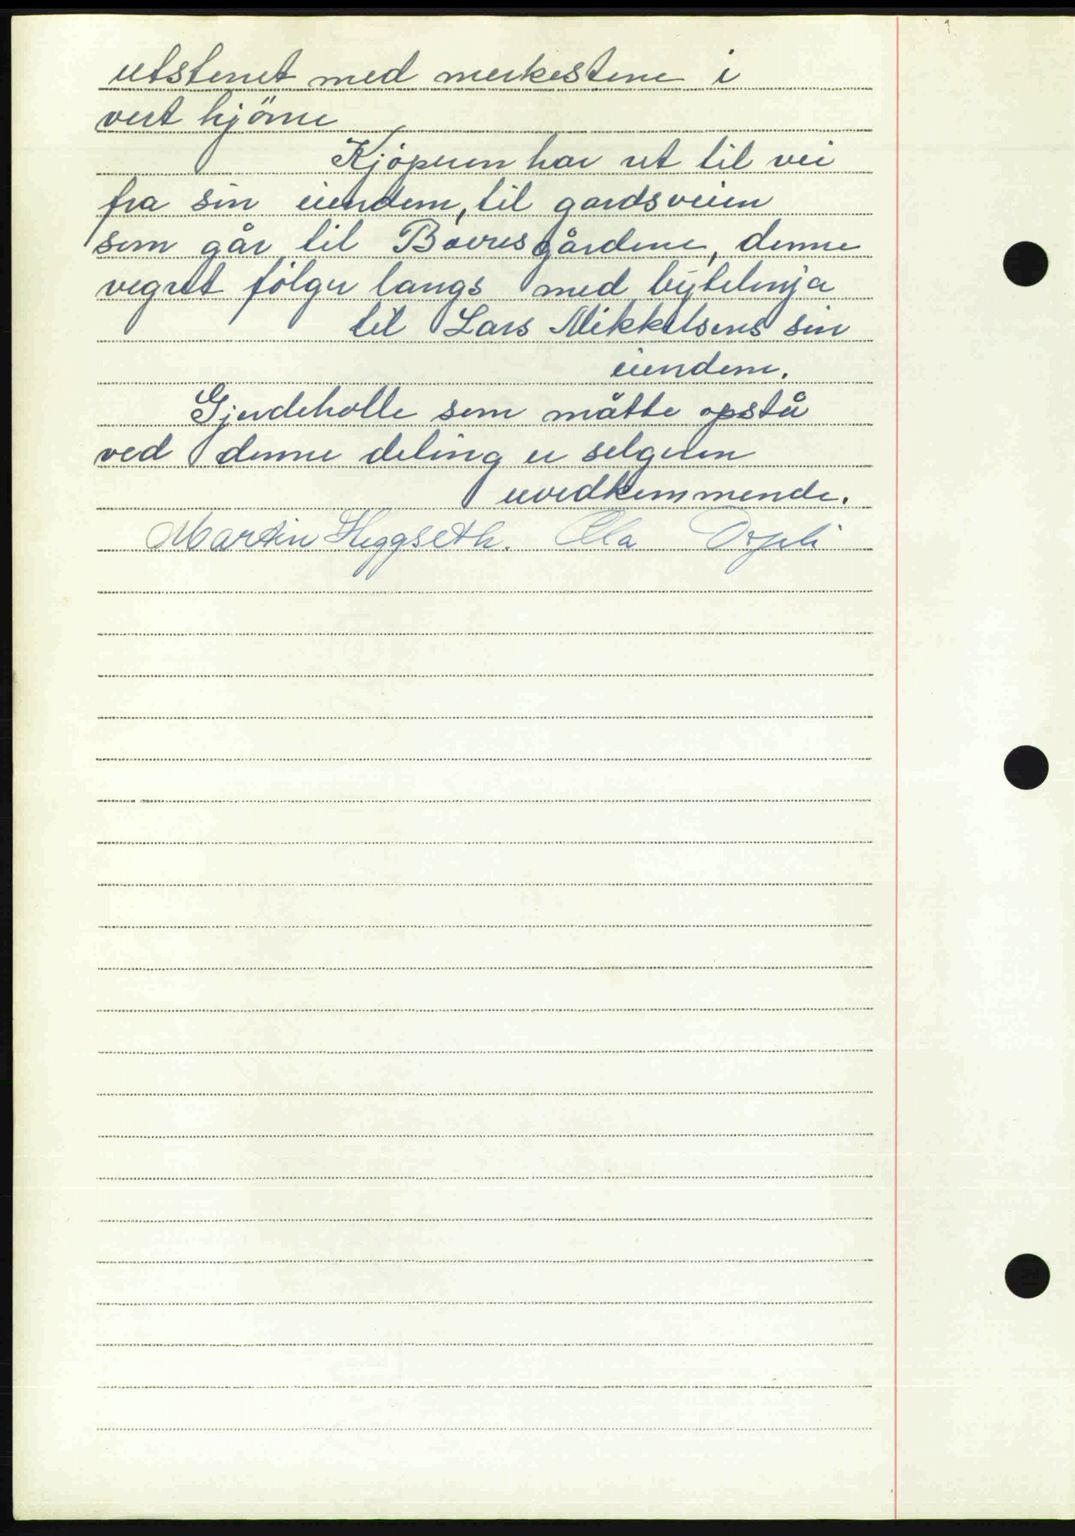 utstenet med merkestene i
vert hjörne
Kjöperen har ret til vei
fra sin eiendem, til gardsveien
sem går til Bævresgårdene, denne
vegret fölger langs med bytelinja
til Lars Mikkelsens sin
eiendem.
Gjerdeholle sem måtte opstå
ved denne deling er selgeren
uvedkemmende.
Martin Heggseth. Ola